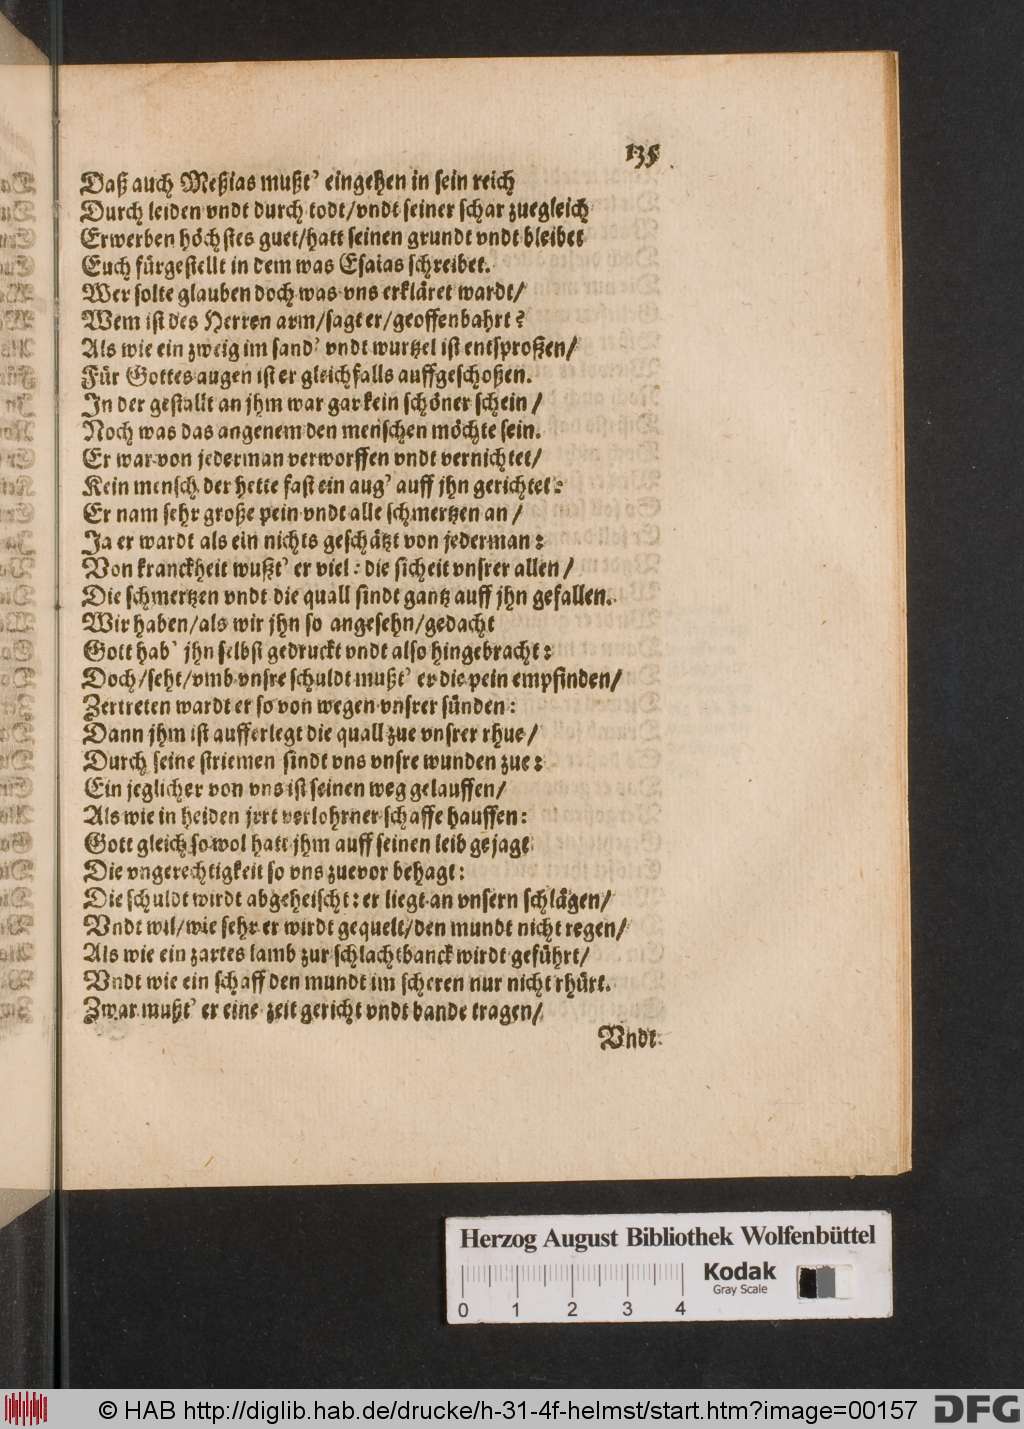 135
Daß auch Meßias mußt' eingehen in sein reich
Durch leiden vndt durch todt/vndt seiner schar zuegleich
Erwerben höchstes guet/hatt seinen grundt vndt bleibet
Euch fürgestellt in dem was Esaias schreibet.
Wer solte glauben doch was vns erkläret wardt/
Wem ist des Herren arm/sagt er/geoffenbahrt?
Als wie ein zweig im sand' vndt wurtzel ist entsproßen/
Für Gottes augen ist er gleichfalls auffgeschoßen.
In der gestallt an jhm war gar kein schöner schein/
Noch was das angenem den menschen möchte sein.
Er war von jederman verworffen vndt vernichtet/
Kein mensch der hette fast ein aug' auff jhn gerichtet:
Er nam sehr große pein vndt alle schmertzen an/
Ja er wardt als ein nichts geschätzt von jederman:
Von kranckheit wußt' er viel: die sicheit vnsrer allen/
Die schmertzen vndt die quall sindt gantz auff jhn gefallen.
Wir haben/als wir jhn so angesehn/gedacht
Gott hab' jhn selbst gedruckt vndt also hingebracht:
Doch/seht/vmb vnsre schuldt mußt' er die pein empfinden/
Zertreten wardt er so von wegen vnsrer sünden:
Dann jhm ist aufferlegt die quall zue vnsrer rhue/
Durch seine striemen sindt vns vnsre wunden zue:
Ein jeglicher von vns ist seinen weg gelauffen/
Als wie in heiden jrrt verlohrner schaffe hauffen:
Gott gleich so wol hatt jhm auff seinen leib gejagt
Die vngerechtigkeit so vns zuevor behagt:
Die schuldt wirdt abgeheischt: er liegt an vnsern schlägen/
Vndt wil/wie sehr er wirdt gequelt/den mundt nicht regen/
Als wie ein zartes lamb zur schlachtbanck wirdt geführt/
Vndt wie ein schaff den mundt im scheren nur nicht rhürt.
Zwar mußt' er eine zeit gericht vndt bande tragen/
Vndt
Herzog August Bibliothek Wolfenbüttel
Kodak
Gray Scale
0 1 2 3 4
© HAB http://diglib.hab.de/drucke/h-31-4f-helmst/start.htm?image=00157
DFG